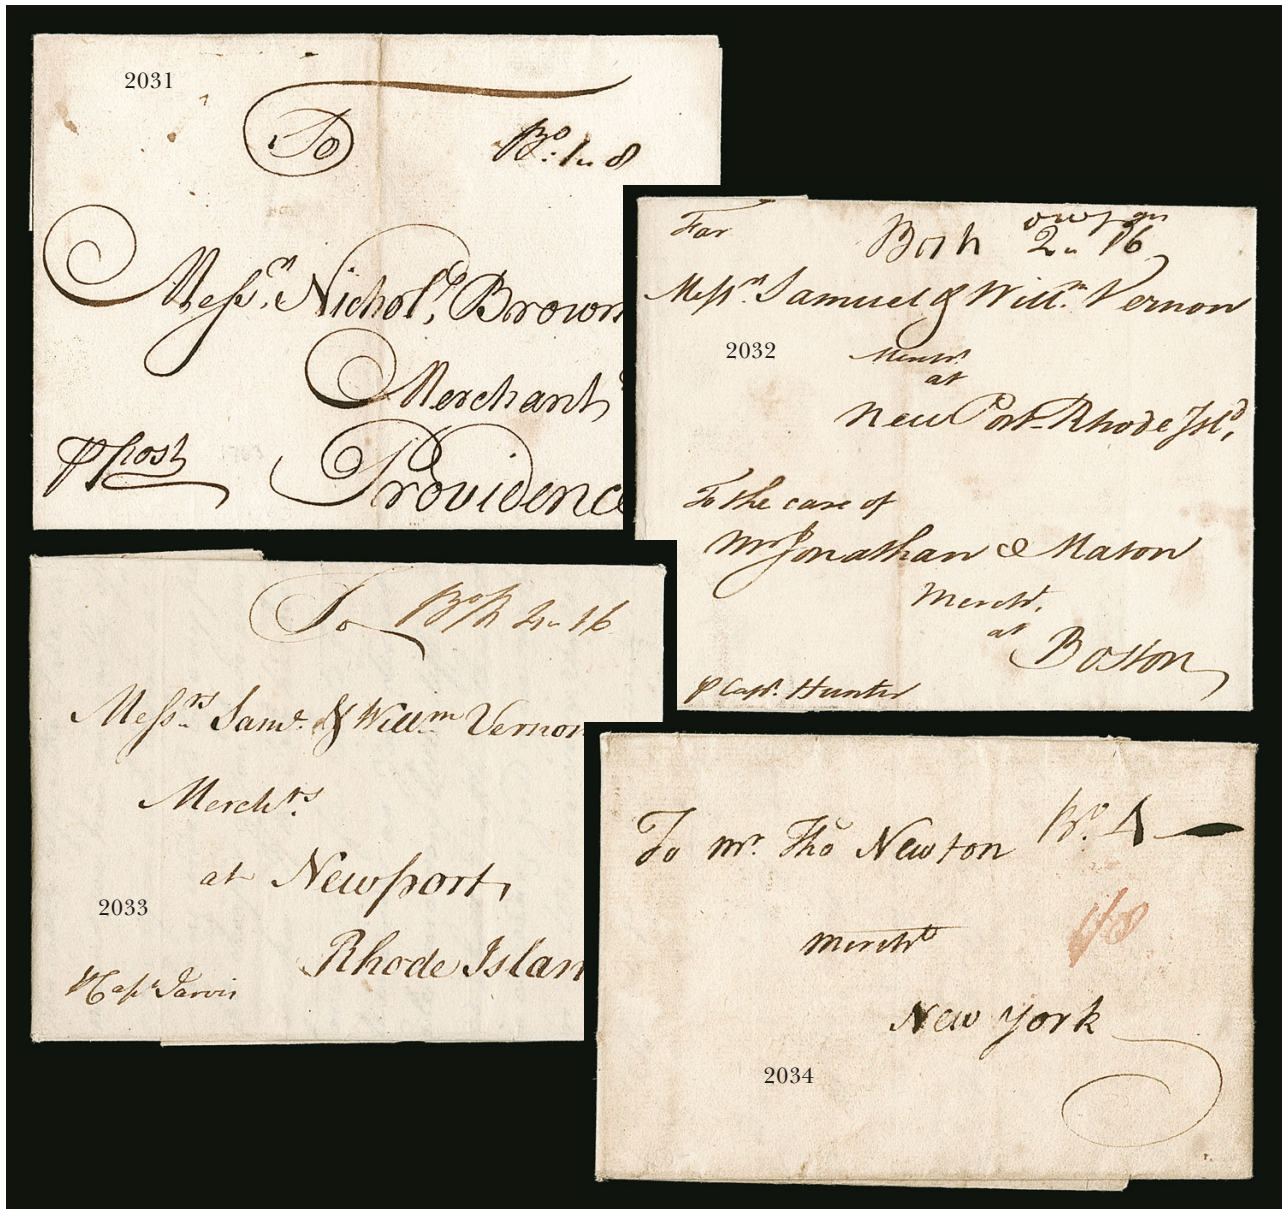 2031
To
Bo: 1.. 8
Messrs. Nichols, Brown
Merchant
Providence
p post
2032
For
Bosh 2.. 16
Messrs. Samuel & Willm. Vernon
at
New Port Rhode Isld,
To the care of
Mr Jonathan Mason
Mercht.
at
Boston
p Capt. Hunter
To
Bosh 2.. 16
Messrs Saml. & Willm Vernon
Merchts.
at Newport,
Rhode Islan
2033
p Capt Jarvis
To Mr. Tho Newton
Bo. 4
1/8
Mercht
New York
2034